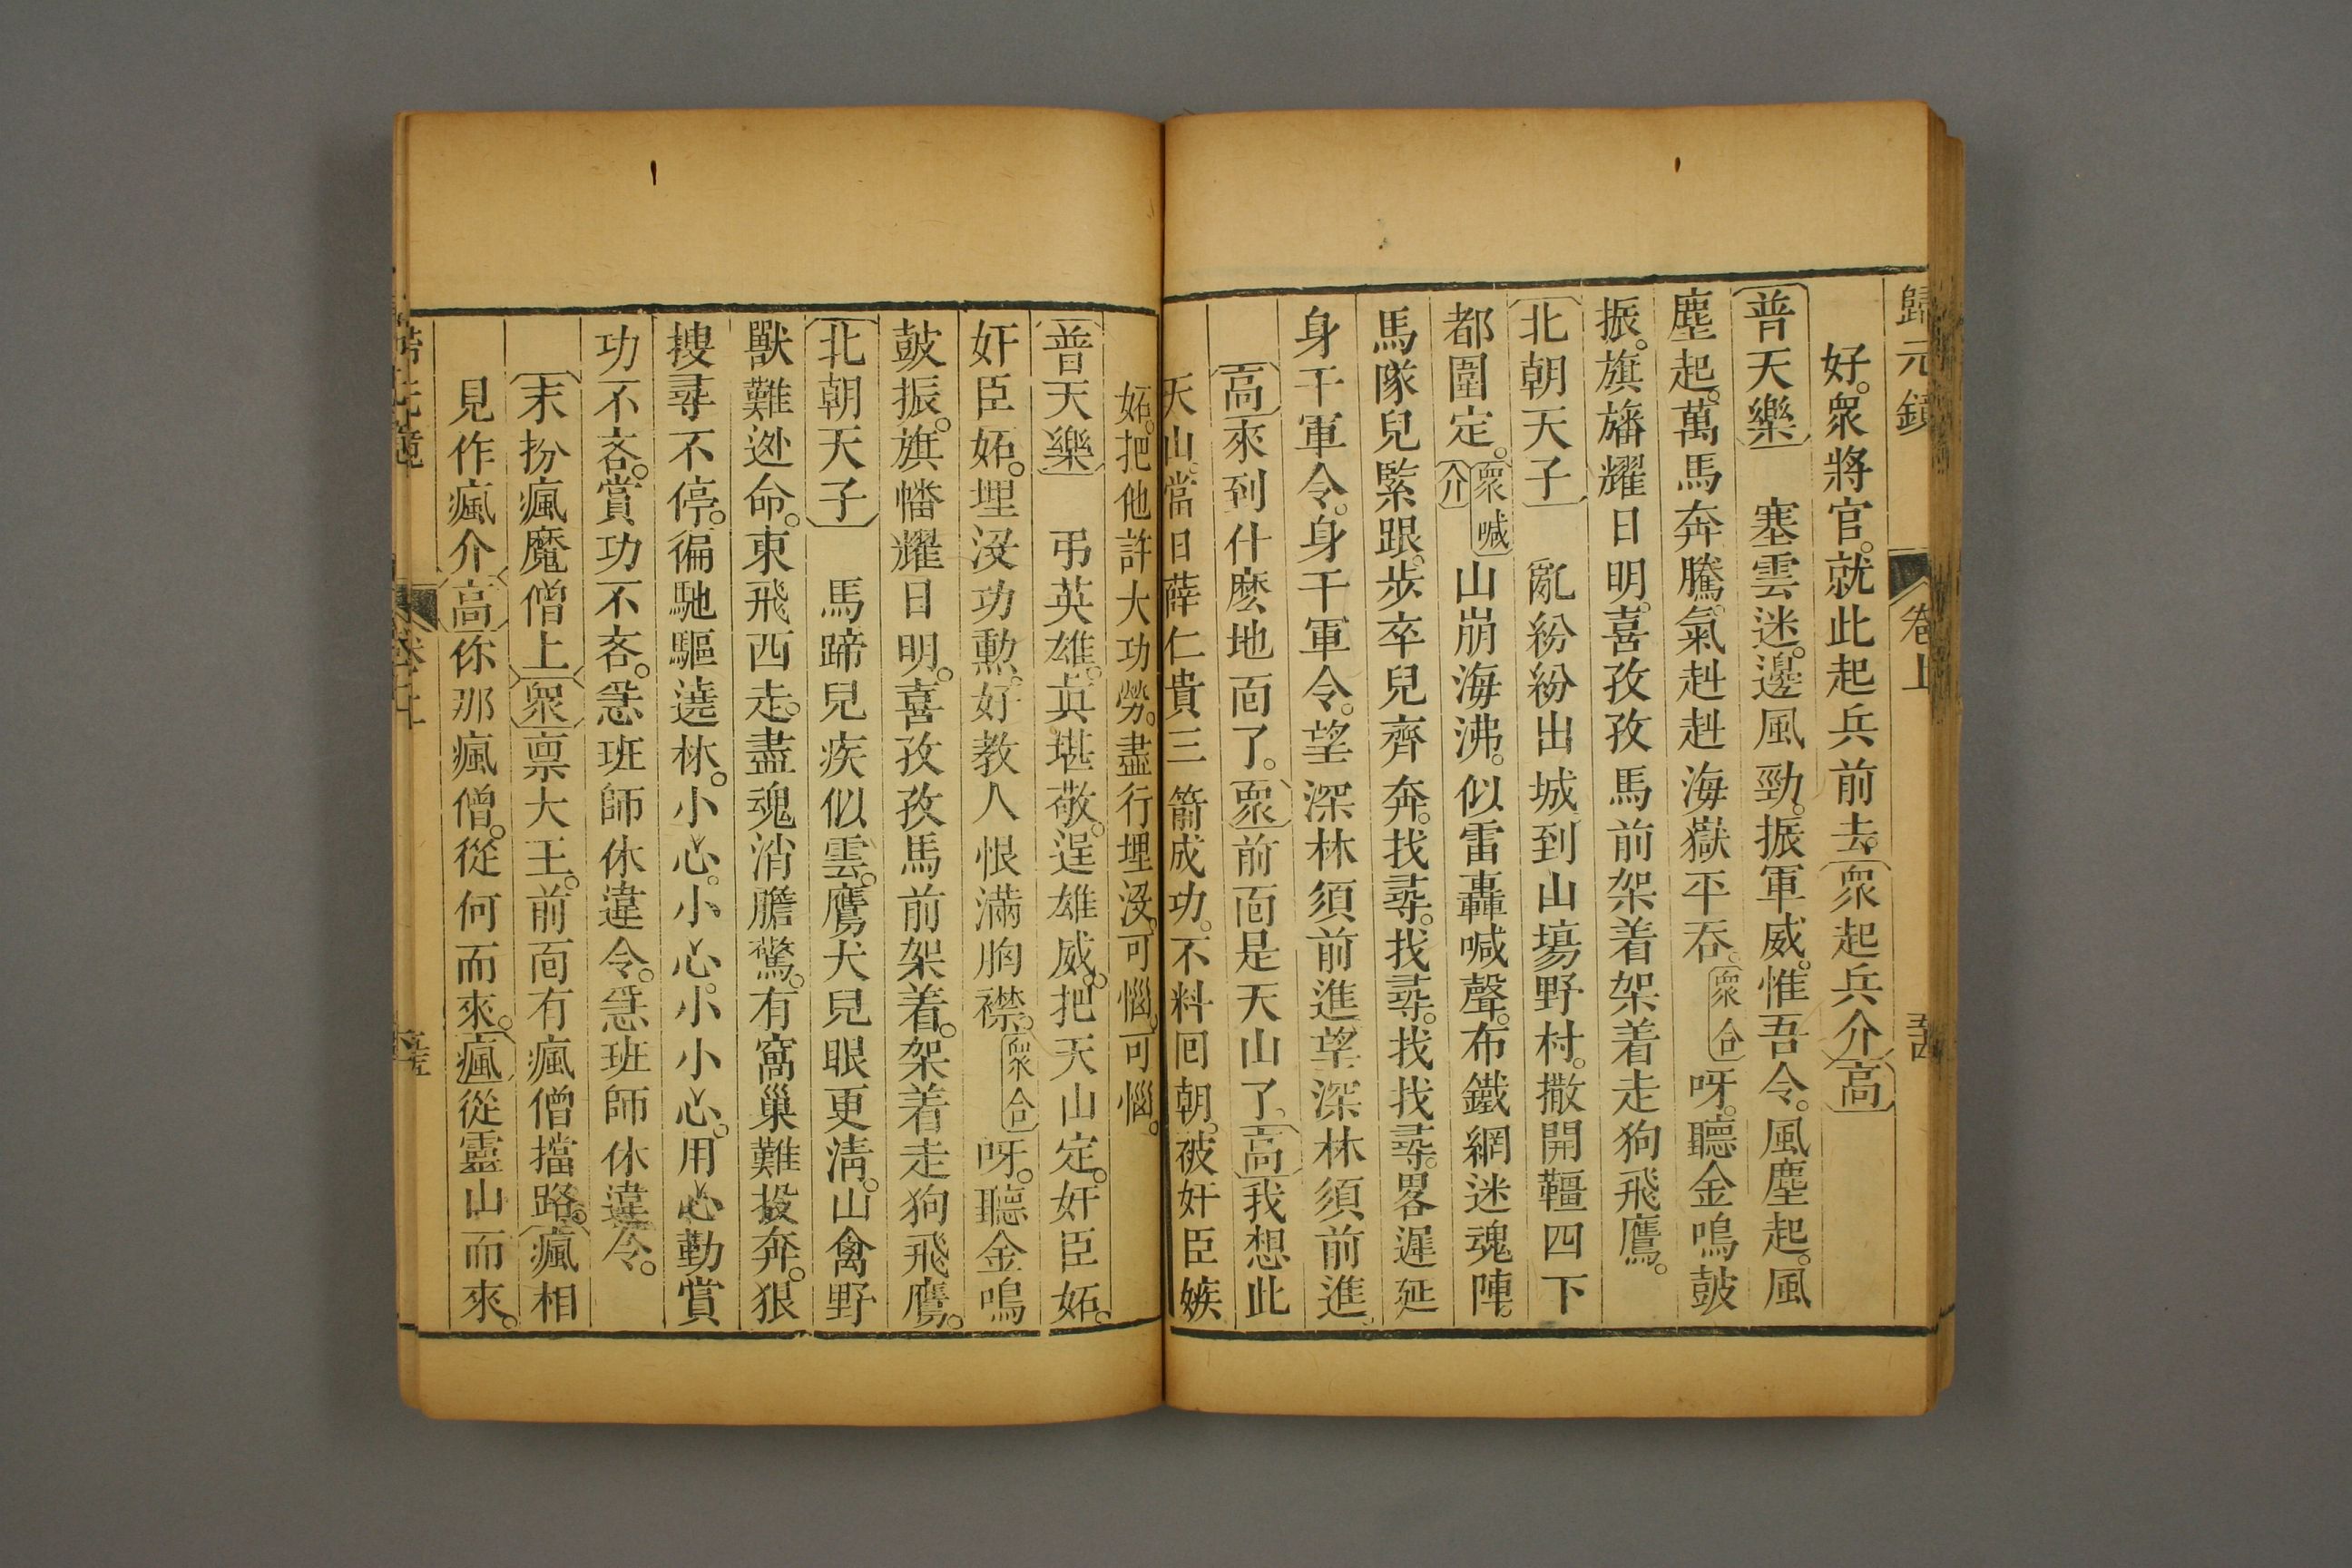 歸元鏡 卷上
好。衆將官。就此起兵前去。衆起兵介高
普天樂 塞雲迷。邊風勁。振軍威。惟吾令。風塵起。風
塵起。萬馬奔騰。氣赳赳海嶽平吞。衆合呀。聽金鳴鼓
振。旗旛耀日明。喜孜孜馬前架着架着走狗飛鷹。
北朝天子 亂紛紛出城到山塲野村。撒開韁四下
都圍定。衆喊介山崩海沸。似雷轟喊聲。布鐵網迷魂陣。
馬隊兒緊跟。步卒兒齊奔。找尋。找尋。找找尋。畧遲延
身干軍令。身干軍令。望深林須前進望深林須前進
高來到什麽地面了。衆前面是天山了。高我想此
天山。當日薛仁貴三箭成功。不料囘朝。被奸臣嫉
妬。把他許大功勞。盡行埋沒。可惱。可惱。
普天樂 弔英雄。眞堪敬。逞雄威。把天山定。奸臣妬。
奸臣妬。埋沒功勲。好教人恨滿胸襟。衆合呀。聽金鳴
鼓振。旗幡耀日明。喜孜孜馬前架着。架着走狗飛鷹。
北朝天子 馬蹄兒疾似雲。鷹犬兒眼更淸。山禽野
獸難迯命。東飛西走。盡魂消膽驚。有窩巢難投奔。狠
搜尋不停。徧馳驅遶林。小心。小心。小小心。用心勤賞
功不吝。賞功不吝。急班師休違令。急班師休違令。
末扮瘋魔僧上衆禀大王。前面有瘋僧擋路。瘋相
見作瘋介高你那瘋僧。從何而來。瘋從靈山而來。
歸元鏡